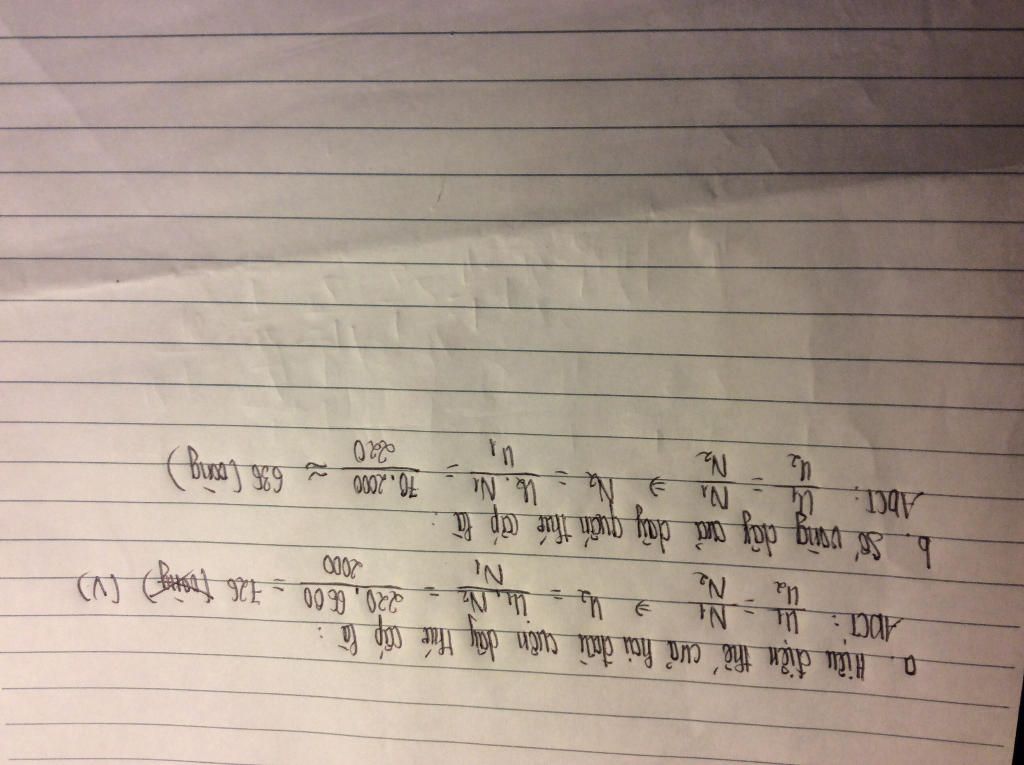 a. Hiệu điện thế của hai đầu cuộn dây thứ cấp là :
ADCT : U1/U2 = N1/N2 ⇒ U2 = U1.N2/N1 = 220.6600/2000 = 726 (vòng) (V)
b. Số vòng dây của dây quấn thứ cấp là :
ADCT : U1/U2 = N1/N2 ⇒ N2 = U2.N1/U1 = 70.2000/220 ≈ 636 (vòng)